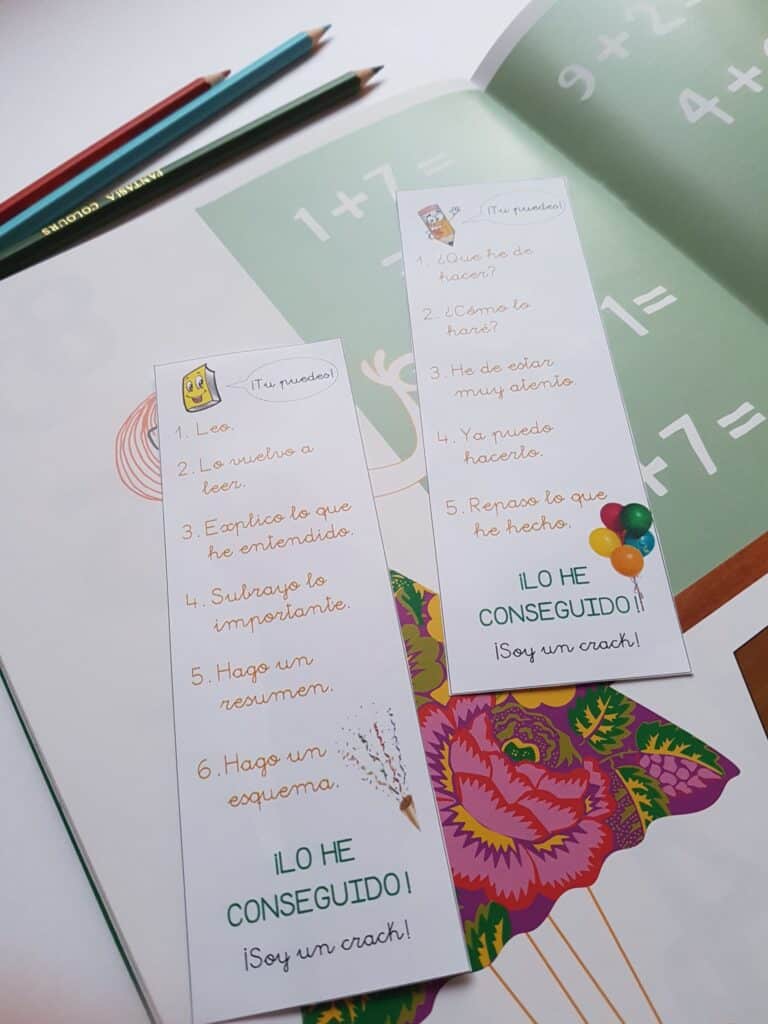 9+2=
4+
1+7=
1=
+7=
FANTASIA COLOURS
¡Tu puedes!
1. Leo.
2. Lo vuelvo a
leer.
3. Explico lo que
he entendido.
4. Subrayo lo
importante.
5. Hago un
resumen.
6. Hago un
esquema.
¡LO HE
CONSEGUIDO!
¡Soy un crack!
¡Tu puedes!
1. ¿Que he de
hacer?
2. ¿Cómo lo
haré?
3. He de estar
muy atento.
4. Ya puedo
hacerlo.
5. Repaso lo que
he hecho.
¡LO HE
CONSEGUIDO!
¡Soy un crack!